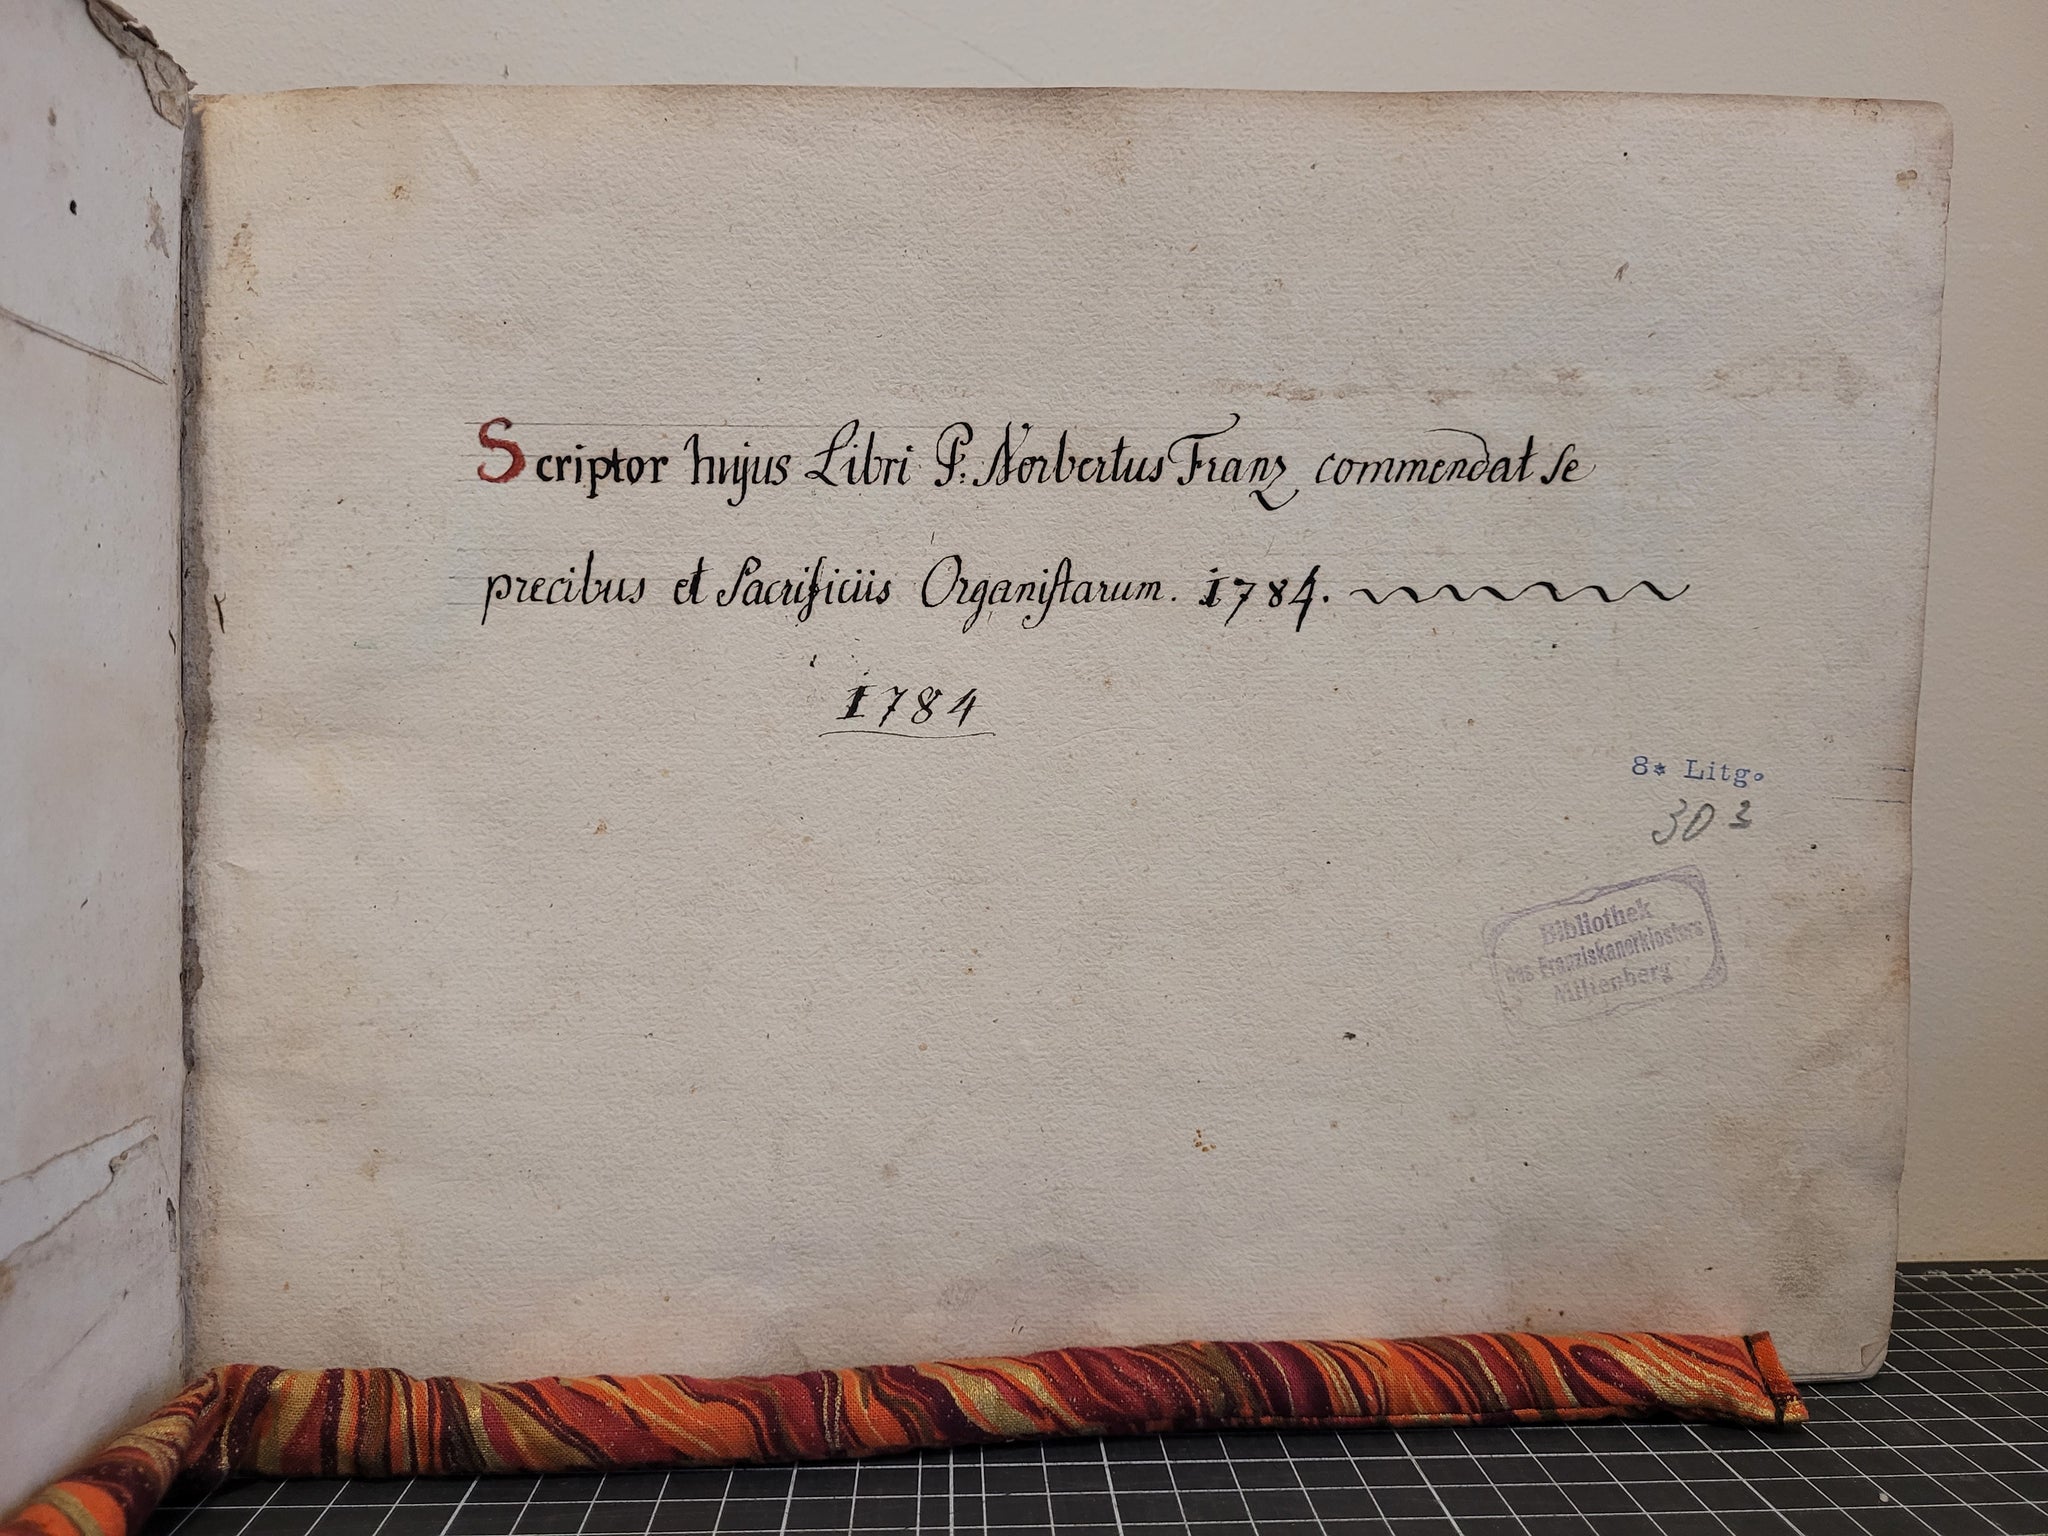 Scriptor hujus Libri P: Norbertus Franz commendat se
precibus et Sacrificiis Organistarum. 1784.
1784
8* Litg.
303
Bibliothek
des Franziskanerklosters
Miltenberg